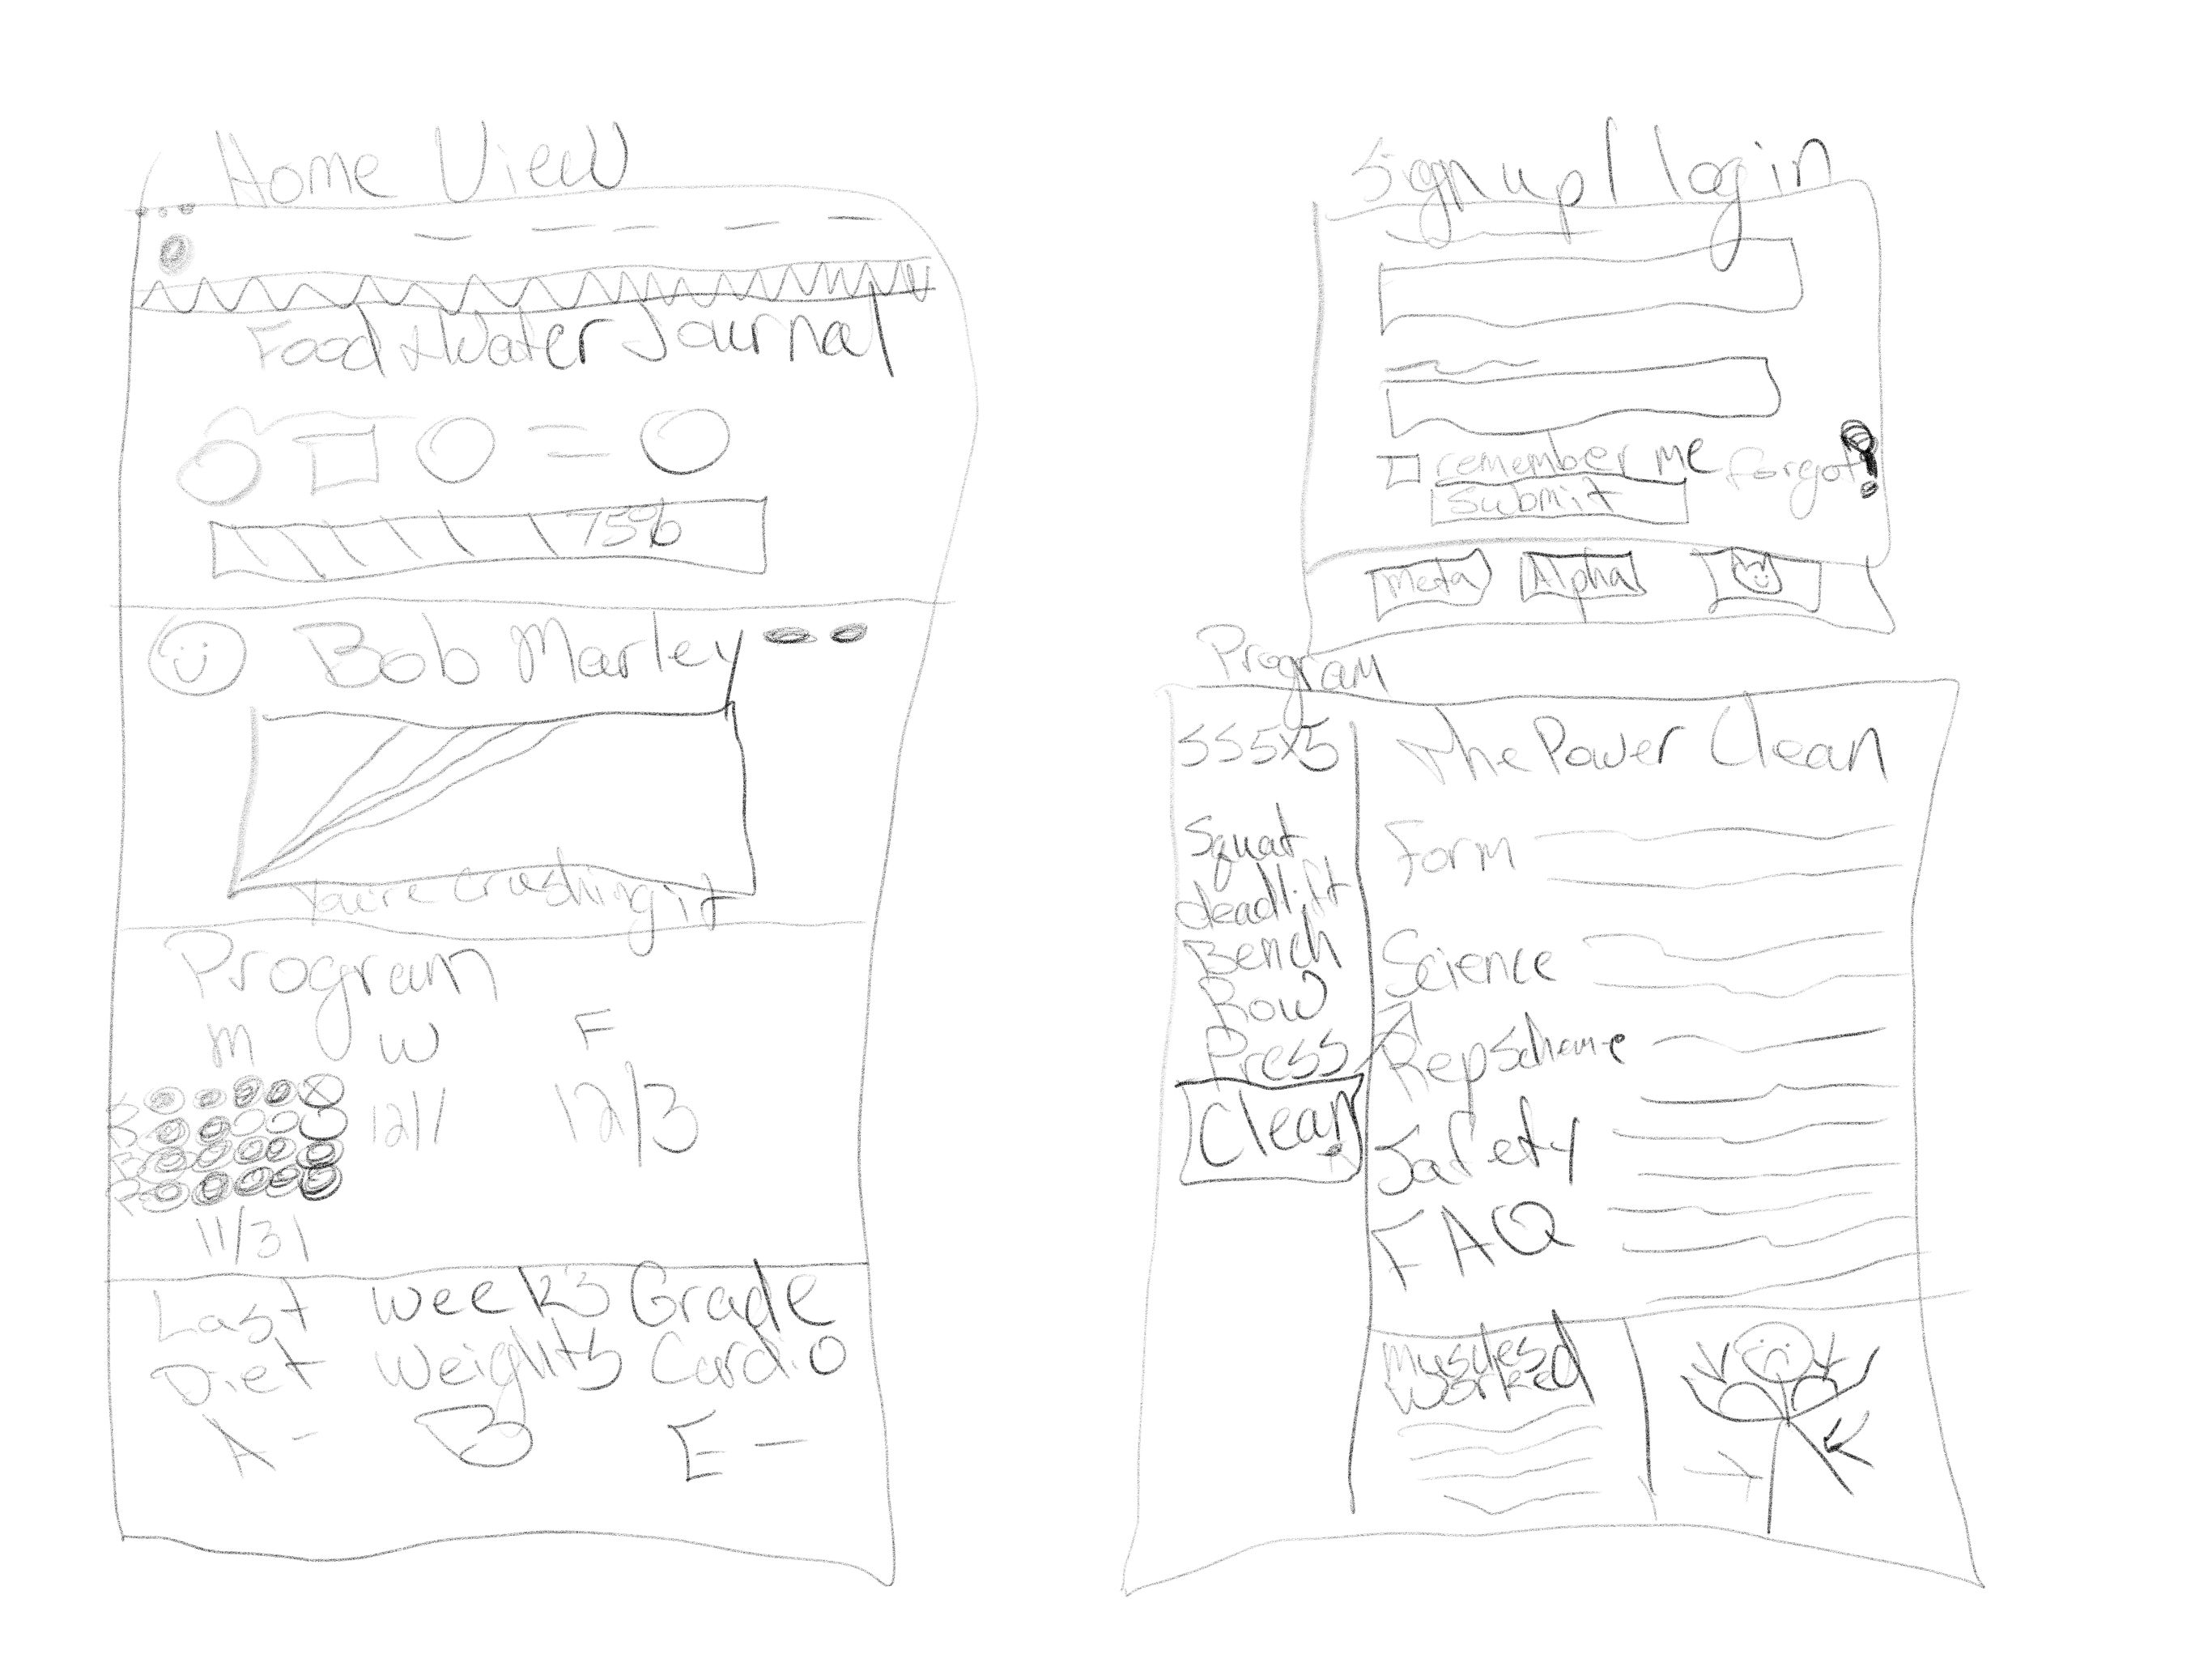 Home View
Food & Water Journal
75%
Bob Marley
You're crushing it
Program
M W F
B
B
R
12/1 12/3
11/31
Last Week's Grade
Diet Weights Cardio
A- B E-
Sign up / login
remember me forgot?
Submit
Meta Alpha
Program
SS 5x5
Squat
deadlift
Bench
Row
Press
Clean
The Power Clean
Form
Science
Rep Scheme
Safety
FAQ
Muscles
Worked